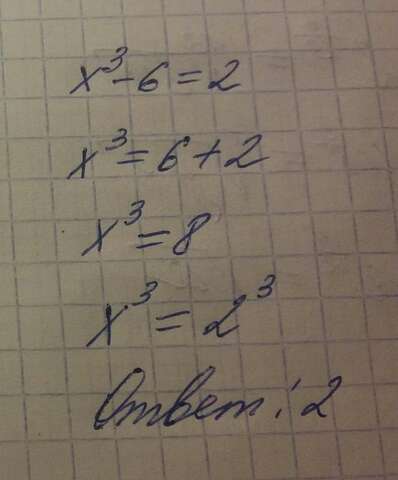 x³-6=2
x³=6+2
x³=8
x³=2³
Ответ: 2